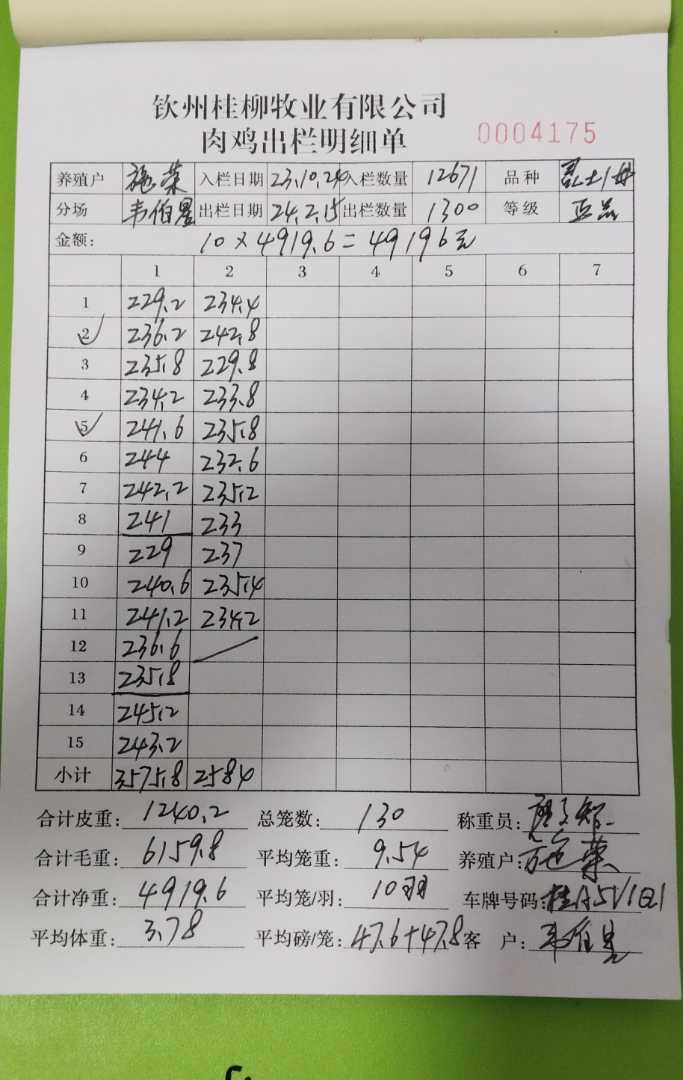 钦州桂柳牧业有限公司
肉鸡出栏明细单 0004175
养殖户 施荣 入栏日期 23.10.24 入栏数量 12671 品种
分场 韦伯昱 出栏日期 24.2.15 出栏数量 1300 等级 正品
金额: 10×4919.6=49196元
1 2 3 4 5 6 7
1 229.2 234.4
2 236.2 242.8
3 235.8 229.8
4 234.2 233.8
5 241.6 235.8
6 244 232.6
7 242.2 235.2
8 241 233
9 229 237
10 240.6 235.4
11 241.2 234.2
12 236.6
13 235.8
14 245.2
15 243.2
小计 3575.8 2584
合计皮重: 1240.2 总笼数: 130 称重员:
合计毛重: 6159.8 平均笼重: 9.54 养殖户: 施荣
合计净重: 4919.6 平均笼/羽: 10羽 车牌号码:
平均体重: 3.78 平均磅/笼: 47.6+47.8 客 户: 韦伯昱